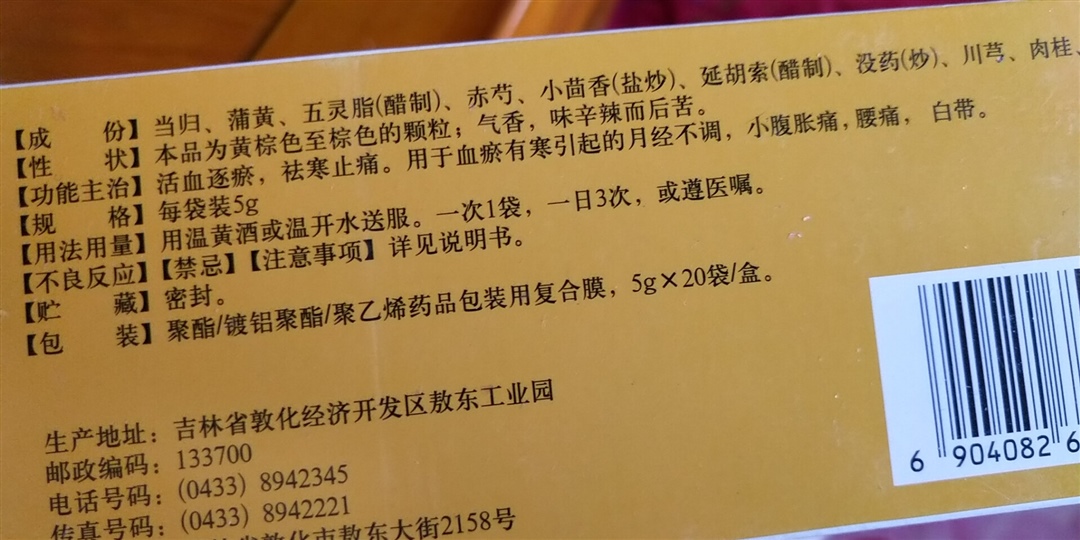 【成　　份】当归、蒲黄、五灵脂(醋制)、赤芍、小茴香(盐炒)、延胡索(醋制)、没药(炒)、川芎、肉桂、
【性　　状】本品为黄棕色至棕色的颗粒；气香，味辛辣而后苦。
【功能主治】活血逐瘀，祛寒止痛。用于血瘀有寒引起的月经不调，小腹胀痛，腰痛，白带。
【规　　格】每袋装5g
【用法用量】用温黄酒或温开水送服。一次1袋，一日3次，或遵医嘱。
【不良反应】【禁忌】【注意事项】详见说明书。
【贮　　藏】密封。
【包　　装】聚酯/镀铝聚酯/聚乙烯药品包装用复合膜，5g×20袋/盒。
生产地址：吉林省敦化经济开发区敖东工业园
邮政编码：133700
电话号码：(0433) 8942345
传真号码：(0433) 8942221
省敦化市敖东大街2158号
6 904082 6